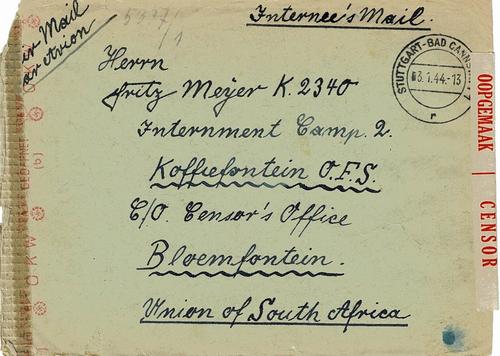 5327/1
Internee's Mail.
Air Mail
Par Avion
STUTTGART-BAD CANNSTATT
13.1.44.-13
r
Herrn
Fritz Meyer K. 2340
Internment Camp. 2.
Koffiefontein O.F.S.
C/O. Censor's Office
Bloemfontein.
Union of South Africa
OOPGEMAAK | CENSOR
(b)
OKW